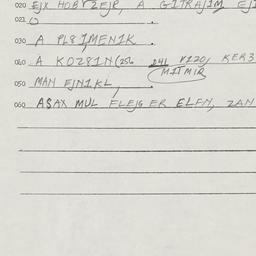 020 EJX HOBYZEJR, A GITRAJIM EJI
021 O
030 A PL81MENIK .
040 A KOZ81N (256 241 VIZO, KER3
MITMIR
050 MAN EJNIKL,
060 ASAX MUL ELEJG ER ELFN, ZAN